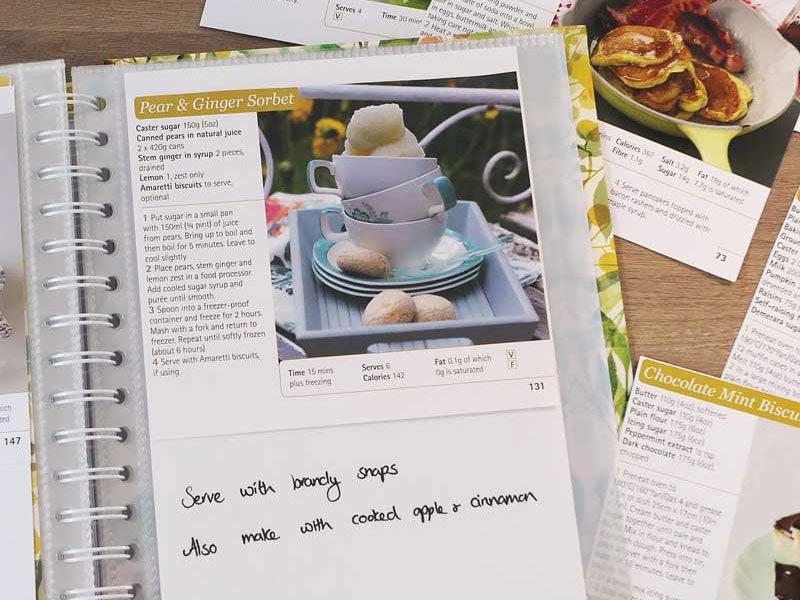 Pear & Ginger Sorbet
Caster sugar 150g (5oz)
Canned pears in natural juice
2 x 420g cans
Stem ginger in syrup 2 pieces,
drained
Lemon 1, zest only
Amaretti biscuits to serve,
optional
1 Put sugar in a small pan
with 150ml (¼ pint) of juice
from pears. Bring up to boil and
then boil for 5 minutes. Leave to
cool slightly
2 Place pears, stem ginger and
lemon zest in a food processor.
Add cooled sugar syrup and
purée until smooth.
3 Spoon into a freezer-proof
container and freeze for 2 hours.
Mash with a fork and return to
freezer. Repeat until softly frozen
(about 6 hours)
4 Serve with Amaretti biscuits,
if using
Time 15 mins
plus freezing
Serves 6
Calories 142
Fat 0.1g of which
0g is saturated
V
F
131
Serve with brandy snaps
Also make with cooked apple & cinnamon
147
Serves 4
V
Time 30
of soda into a bowl
sugar and salt. Whisk
eggs, buttermilk
taking care not
2 Heat
Calories 367
Fibre 1.1g
Salt 3.2g
Sugar 14g
Fat 18g of which
7.7g is saturated
4 Serve pancakes topped with
bacon rashers and drizzled with
maple syrup.
73
Eggs 2
Milk 200
Pumpkin
Raisins 75g
Self-raising
Demerara sugar
Chocolate Mint Biscu
Butter 110g (4oz), softened
Caster sugar 110g (4oz)
Plain flour 175g (6oz)
Icing sugar 175g (6oz)
Peppermint extract ½ tsp
Dark chocolate 175g (6oz),
chopped
1 Preheat oven to
180°C/160°Fan/Gas 4 and grease
a tin or dish 25cm x 17cm (10in